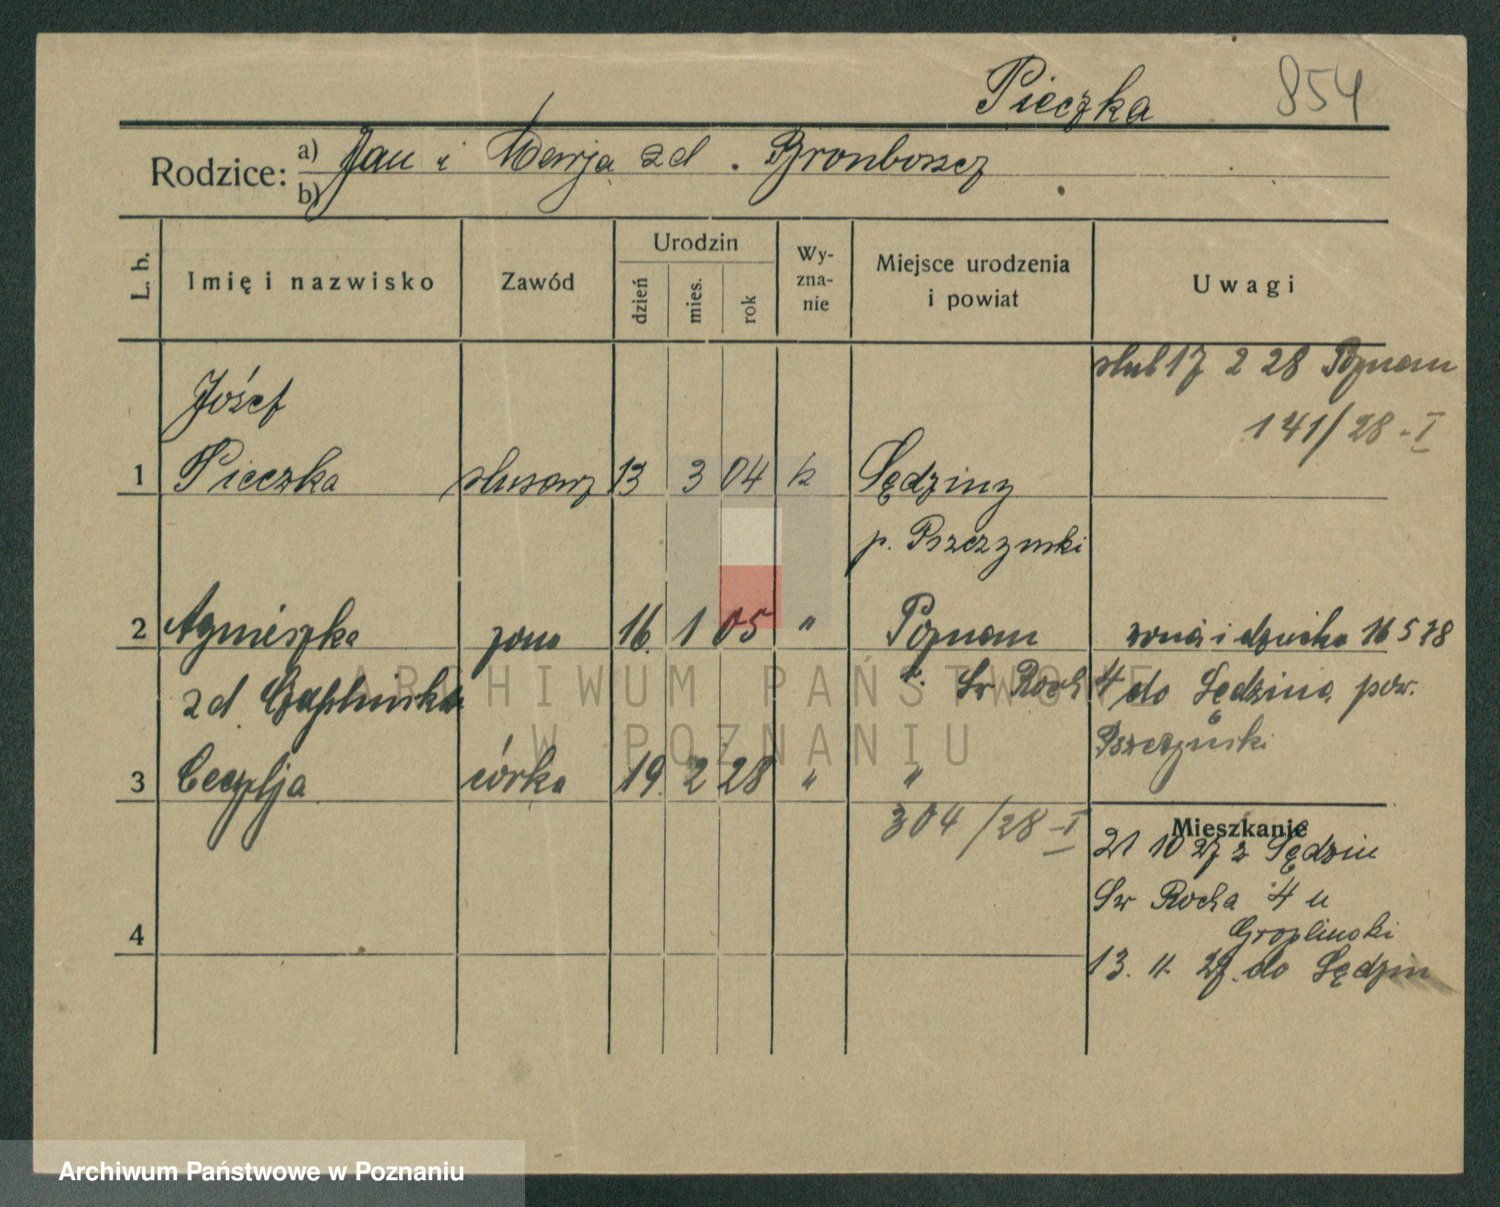 Pieczka 854
Rodzice: a) Jan i Marja zd.
b)
L. b. Imię i nazwisko Zawód Urodzin dzień mies. rok Wy-zna-nie Miejsce urodzenia i powiat Uwagi
ślub 17 2 28 Poznań
141/28 - I
Józef
1 Pieczka ślusarz 13 3 04 k Lędziny
p. Pszczyński
2 Agnieszka żona 16. 1 05 " Poznań żona i dziecko 16 5 28
zd. św Roch 4 do Lędzina pow.
Pszczyński
3 Cecylja córka 19. 2 28 " "
304/28 - I
Mieszkanie
21 10 27 z Lędzin
Św Rocha 4 u
4
13. 11. 27. do Lędzin
ARCHIWUM PAŃSTWOWE
W POZNANIU
Archiwum Państwowe w Poznaniu